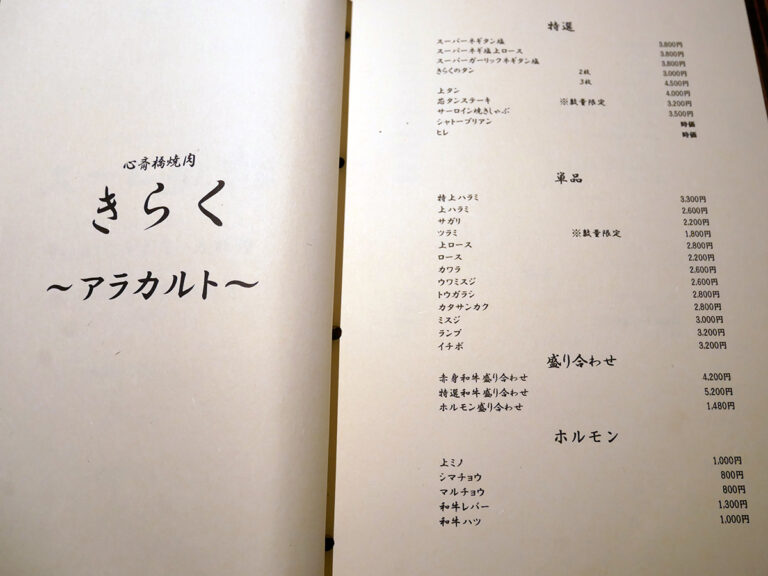 心斎橋焼肉
きらく
～アラカルト～
特選
スーパーネギタン塩 3.800円
スーパーネギ塩上ロース 3.800円
スーパーガーリックネギタン塩 3.800円
きらくのタン 2枚 3.000円
3枚 4.500円
上タン 4.000円
芯タンステーキ ※数量限定 3.200円
サーロイン焼きしゃぶ 3.500円
シャトーブリアン 時価
ヒレ 時価
単品
特上ハラミ 3.300円
上ハラミ 2.600円
サガリ 2.200円
ツラミ ※数量限定 1.800円
上ロース 2.800円
ロース 2.200円
カワラ 2.600円
ウワミスジ 2.600円
トウガラシ 2.800円
カタサンカク 2.800円
ミスジ 3.000円
ランプ 3.200円
イチボ 3.200円
盛り合わせ
赤身和牛盛り合わせ 4.200円
特選和牛盛り合わせ 5.200円
ホルモン盛り合わせ 1.480円
ホルモン
上ミノ 1.000円
シマチョウ 800円
マルチョウ 800円
和牛レバー 1,300円
和牛ハツ 1.000円